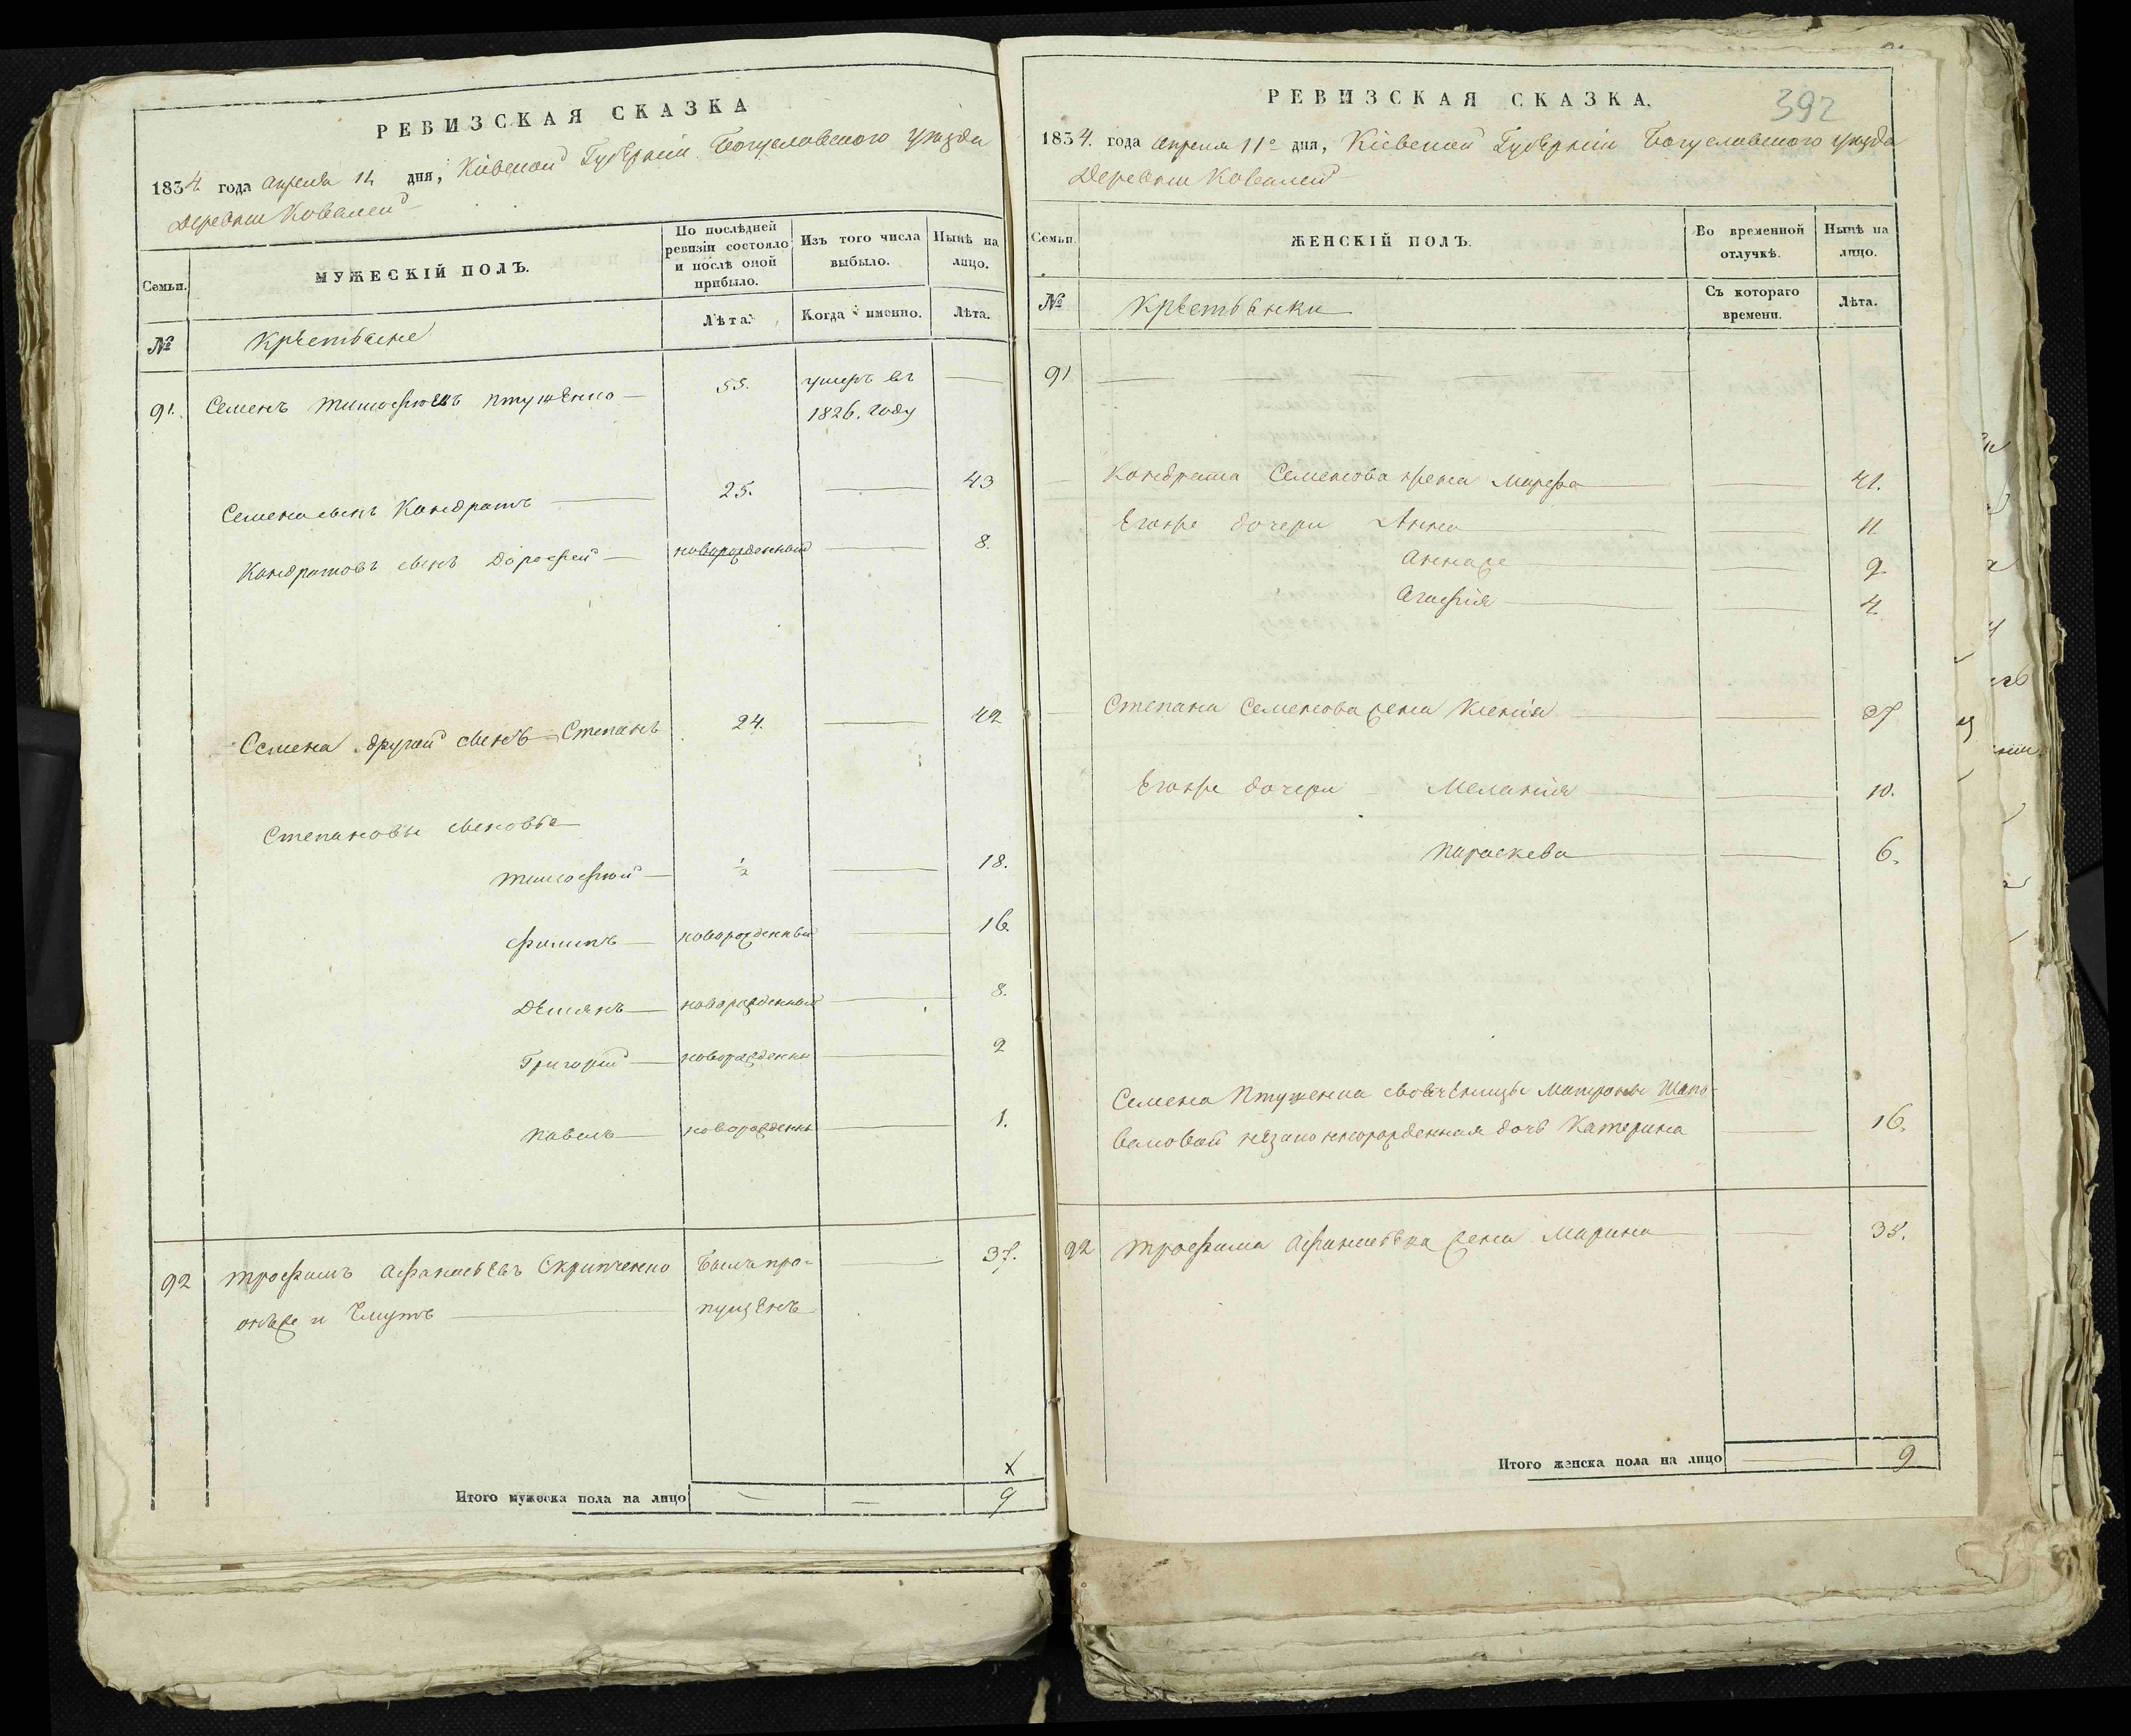 РЕВИЗСКАЯ СКАЗКА
1834 года апреля 11 дня, Кіевской Губерніи Богуславского уезда
Деревни Ковалей
Семьи.
МУЖЕСКІЙ ПОЛЪ.
По послѣдней ревизіи состояло и послѣ оной прибыло.
Изъ того числа выбыло.
Нынѣ на лицо.
№
Крестьяне
Лѣта.
Когда именно.
Лѣта.
91. Семенъ Тимофеевъ Птушенко 55. умеръ въ
1826. году
Семена сынъ Кондратъ 25. 43
Кондратовъ сынъ Дорофей новорожденный 8.
Семена другой сынъ Степанъ 24. 42
Степановы сыновья
Тимофей ½ 18.
Филипъ новорожденный 16.
Демянъ новорожденный 8.
Григорий новорожденны 2
Павелъ новорожденны 1.
92 Трофимъ Афанасьевъ Скрипченко былъ про- 37.
онъже и пущенъ
х
Итого мужеска пола на лицо 9
РЕВИЗСКАЯ СКАЗКА.
392
1834. года апреля 11о дня, Кіевской Губерніи Богуславского уезда
Деревни Ковалей
Семьи.
ЖЕНСКІЙ ПОЛЪ.
Во временной отлучкѣ.
Нынѣ на лицо.
№
Крестьянки
Съ котораго времени.
Лѣта.
91
Кондрата Семенова жена Марфа 41.
Егоже дочери Анна 11
Аннаже 9
Агафія 4
Степана Семенова жена Ксенія 37
Егоже дочери Меланія 10.
Параскева 6.
Семена Птушенка Матроны Шапо-
валовой незаконнорожденная дочь Катерина 16.
92 Трофима Афанасьева жена Марина 35.
Итого женска пола на лицо 9